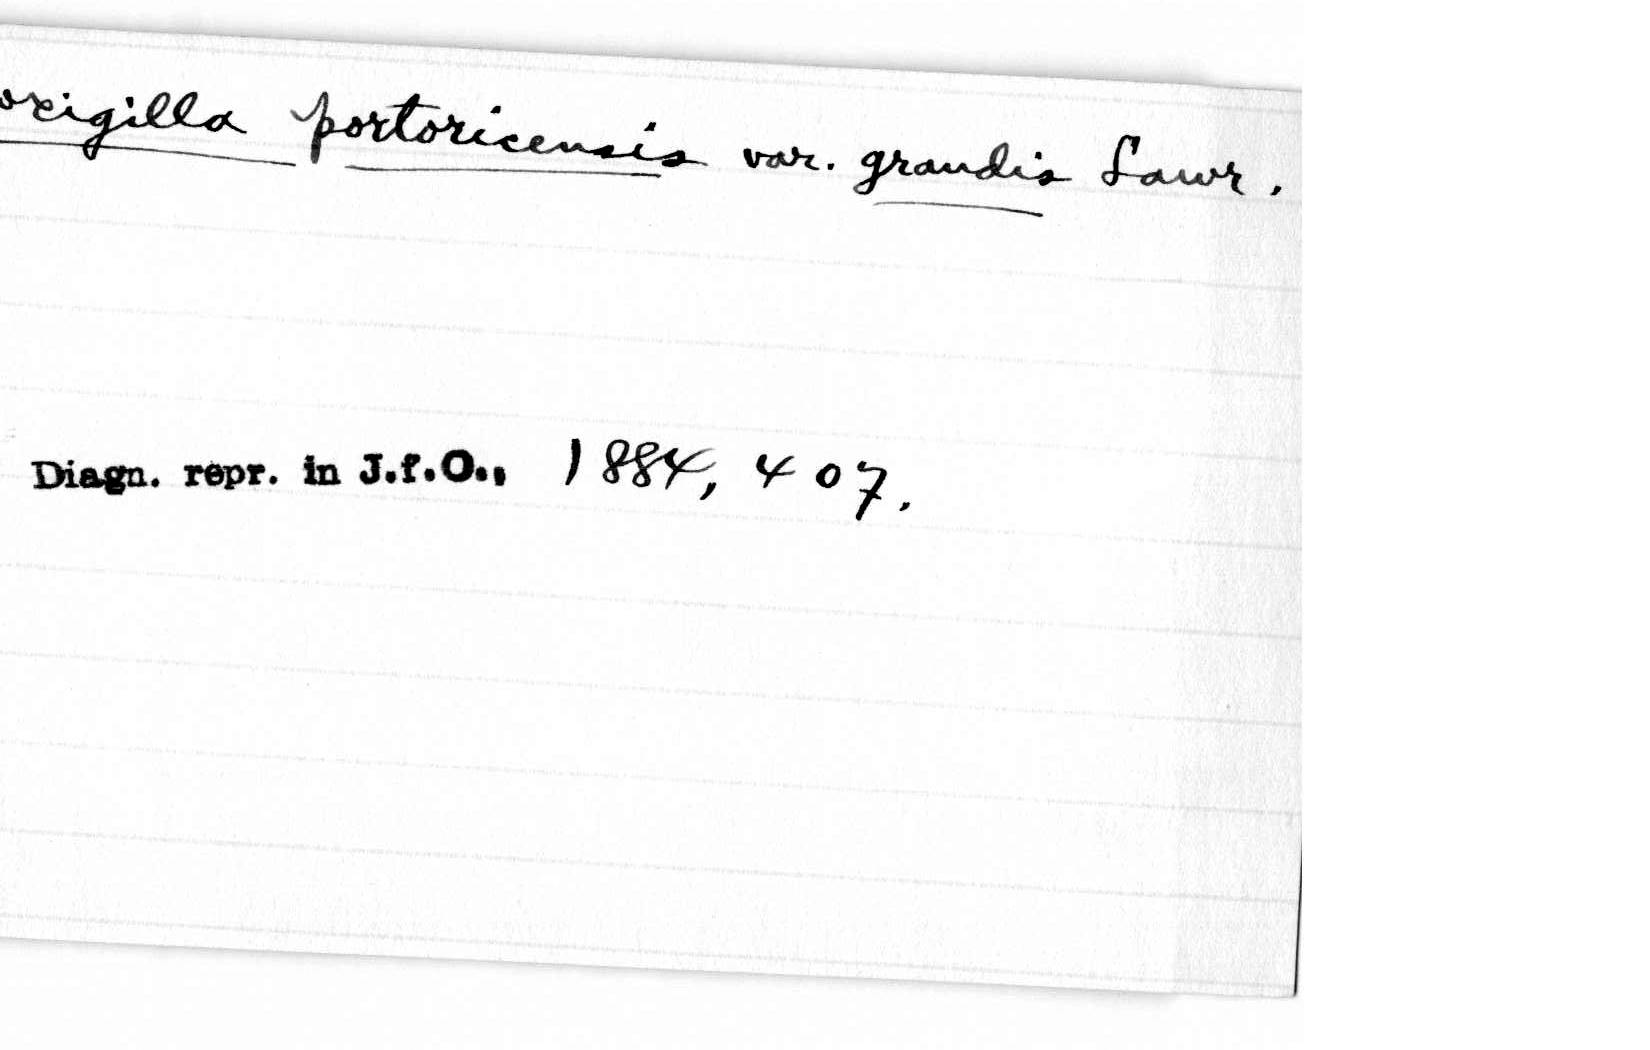 oxigilla portoricensis var. grandis Lawr.
Diagn. repr. in J.f.O., 1884, 407.